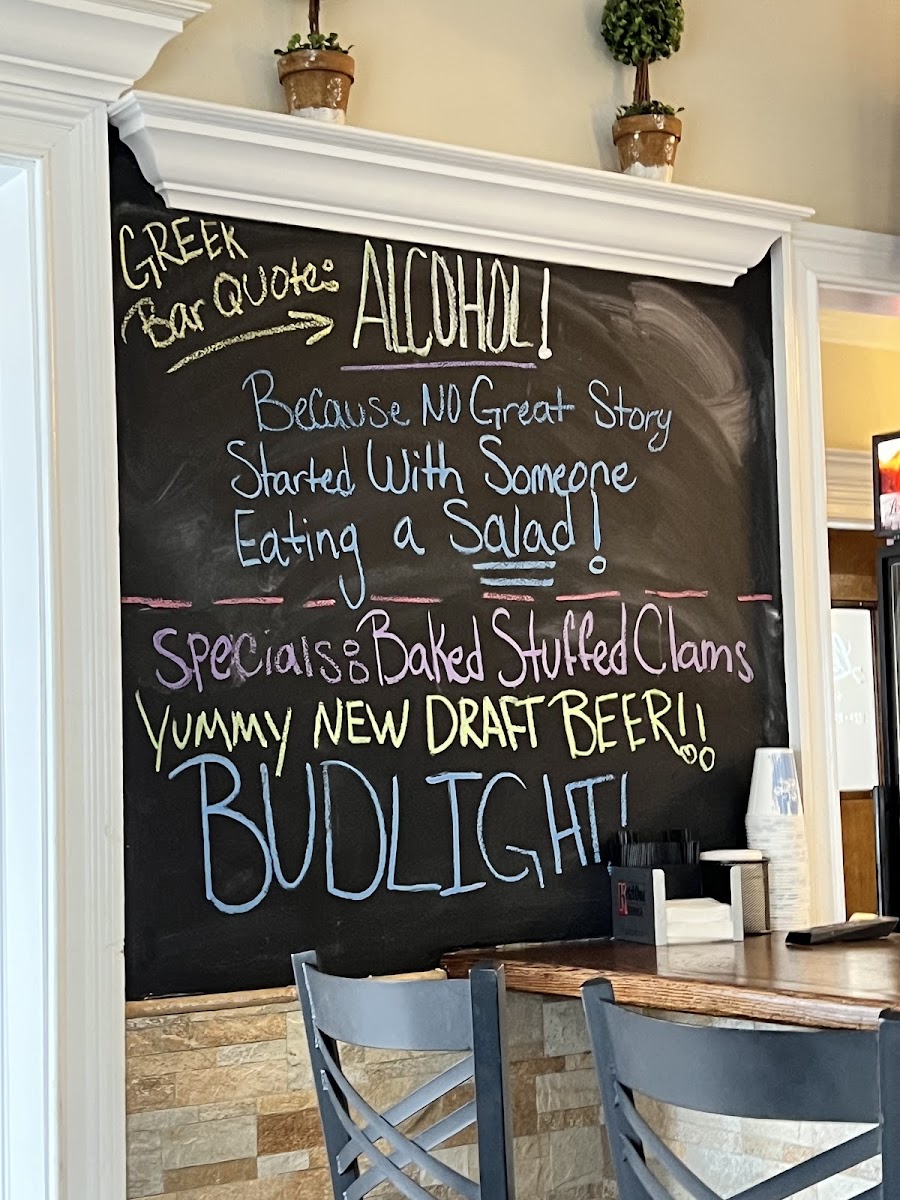 GREEK
Bar Quote:
ALCOHOL!
Because NO Great Story
Started With Someone
Eating a Salad!
Specials: Baked Stuffed Clams
YUMMY NEW DRAFT BEER!!
BUDLIGHT!